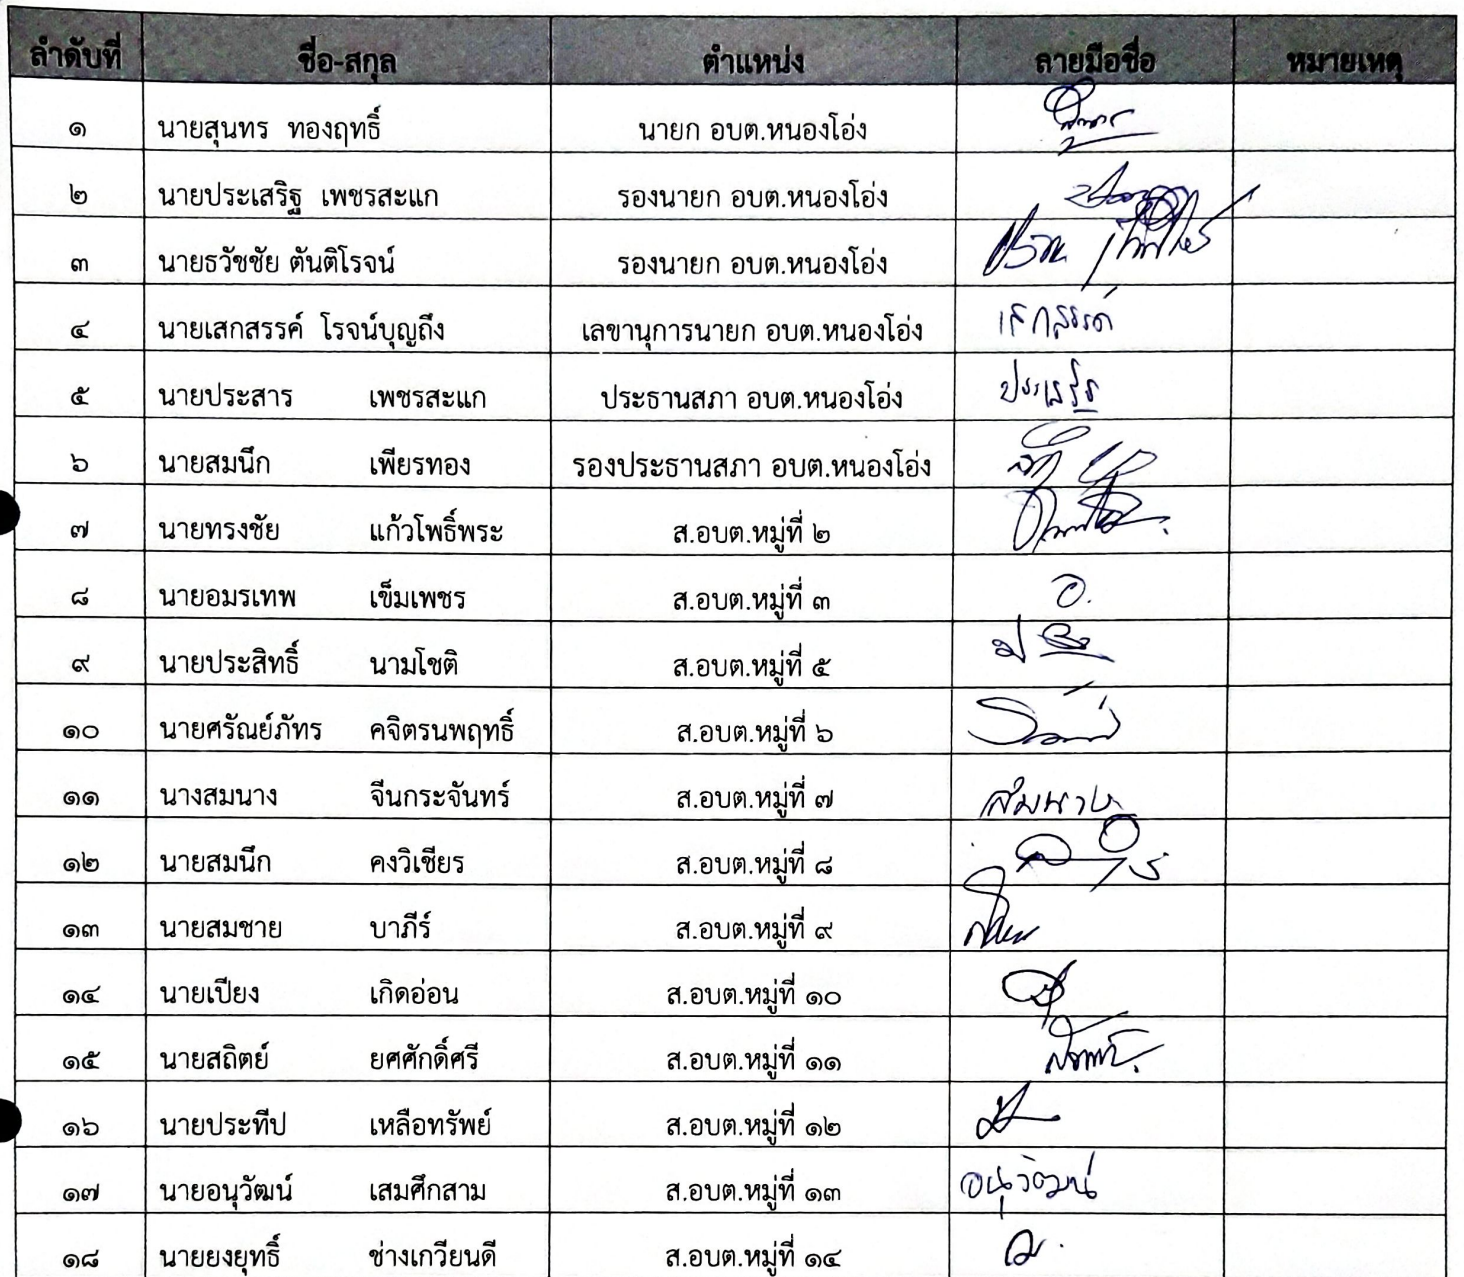 ลำดับที่ ชื่อ-สกุล ตำแหน่ง ลายมือชื่อ หมายเหตุ
๑ นายสุนทร ทองฤทธิ์ นายก อบต.หนองโอ่ง
๒ นายประเสริฐ เพชรสะแก รองนายก อบต.หนองโอ่ง
๓ นายธวัชชัย ตันติโรจน์ รองนายก อบต.หนองโอ่ง
๔ นายเสกสรรค์ โรจน์บุญถึง เลขานุการนายก อบต.หนองโอ่ง เสกสรรค์
๕ นายประสาร เพชรสะแก ประธานสภา อบต.หนองโอ่ง
๖ นายสมนึก เพียรทอง รองประธานสภา อบต.หนองโอ่ง
๗ นายทรงชัย แก้วโพธิ์พระ ส.อบต.หมู่ที่ ๒
๘ นายอมรเทพ เข็มเพชร ส.อบต.หมู่ที่ ๓ อ.
๙ นายประสิทธิ์ นามโชติ ส.อบต.หมู่ที่ ๕
๑๐ นายศรัณย์ภัทร คจิตรนพฤทธิ์ ส.อบต.หมู่ที่ ๖
๑๑ นางสมนาง จีนกระจันทร์ ส.อบต.หมู่ที่ ๗ สมนาง
๑๒ นายสมนึก คงวิเชียร ส.อบต.หมู่ที่ ๘
๑๓ นายสมชาย บาภีร์ ส.อบต.หมู่ที่ ๙
๑๔ นายเปียง เกิดอ่อน ส.อบต.หมู่ที่ ๑๐
๑๕ นายสถิตย์ ยศศักดิ์ศรี ส.อบต.หมู่ที่ ๑๑
๑๖ นายประทีป เหลือทรัพย์ ส.อบต.หมู่ที่ ๑๒
๑๗ นายอนุวัฒน์ เสมศึกสาม ส.อบต.หมู่ที่ ๑๓ อนุวัฒน์
๑๘ นายยงยุทธิ์ ช่างเกวียนดี ส.อบต.หมู่ที่ ๑๔